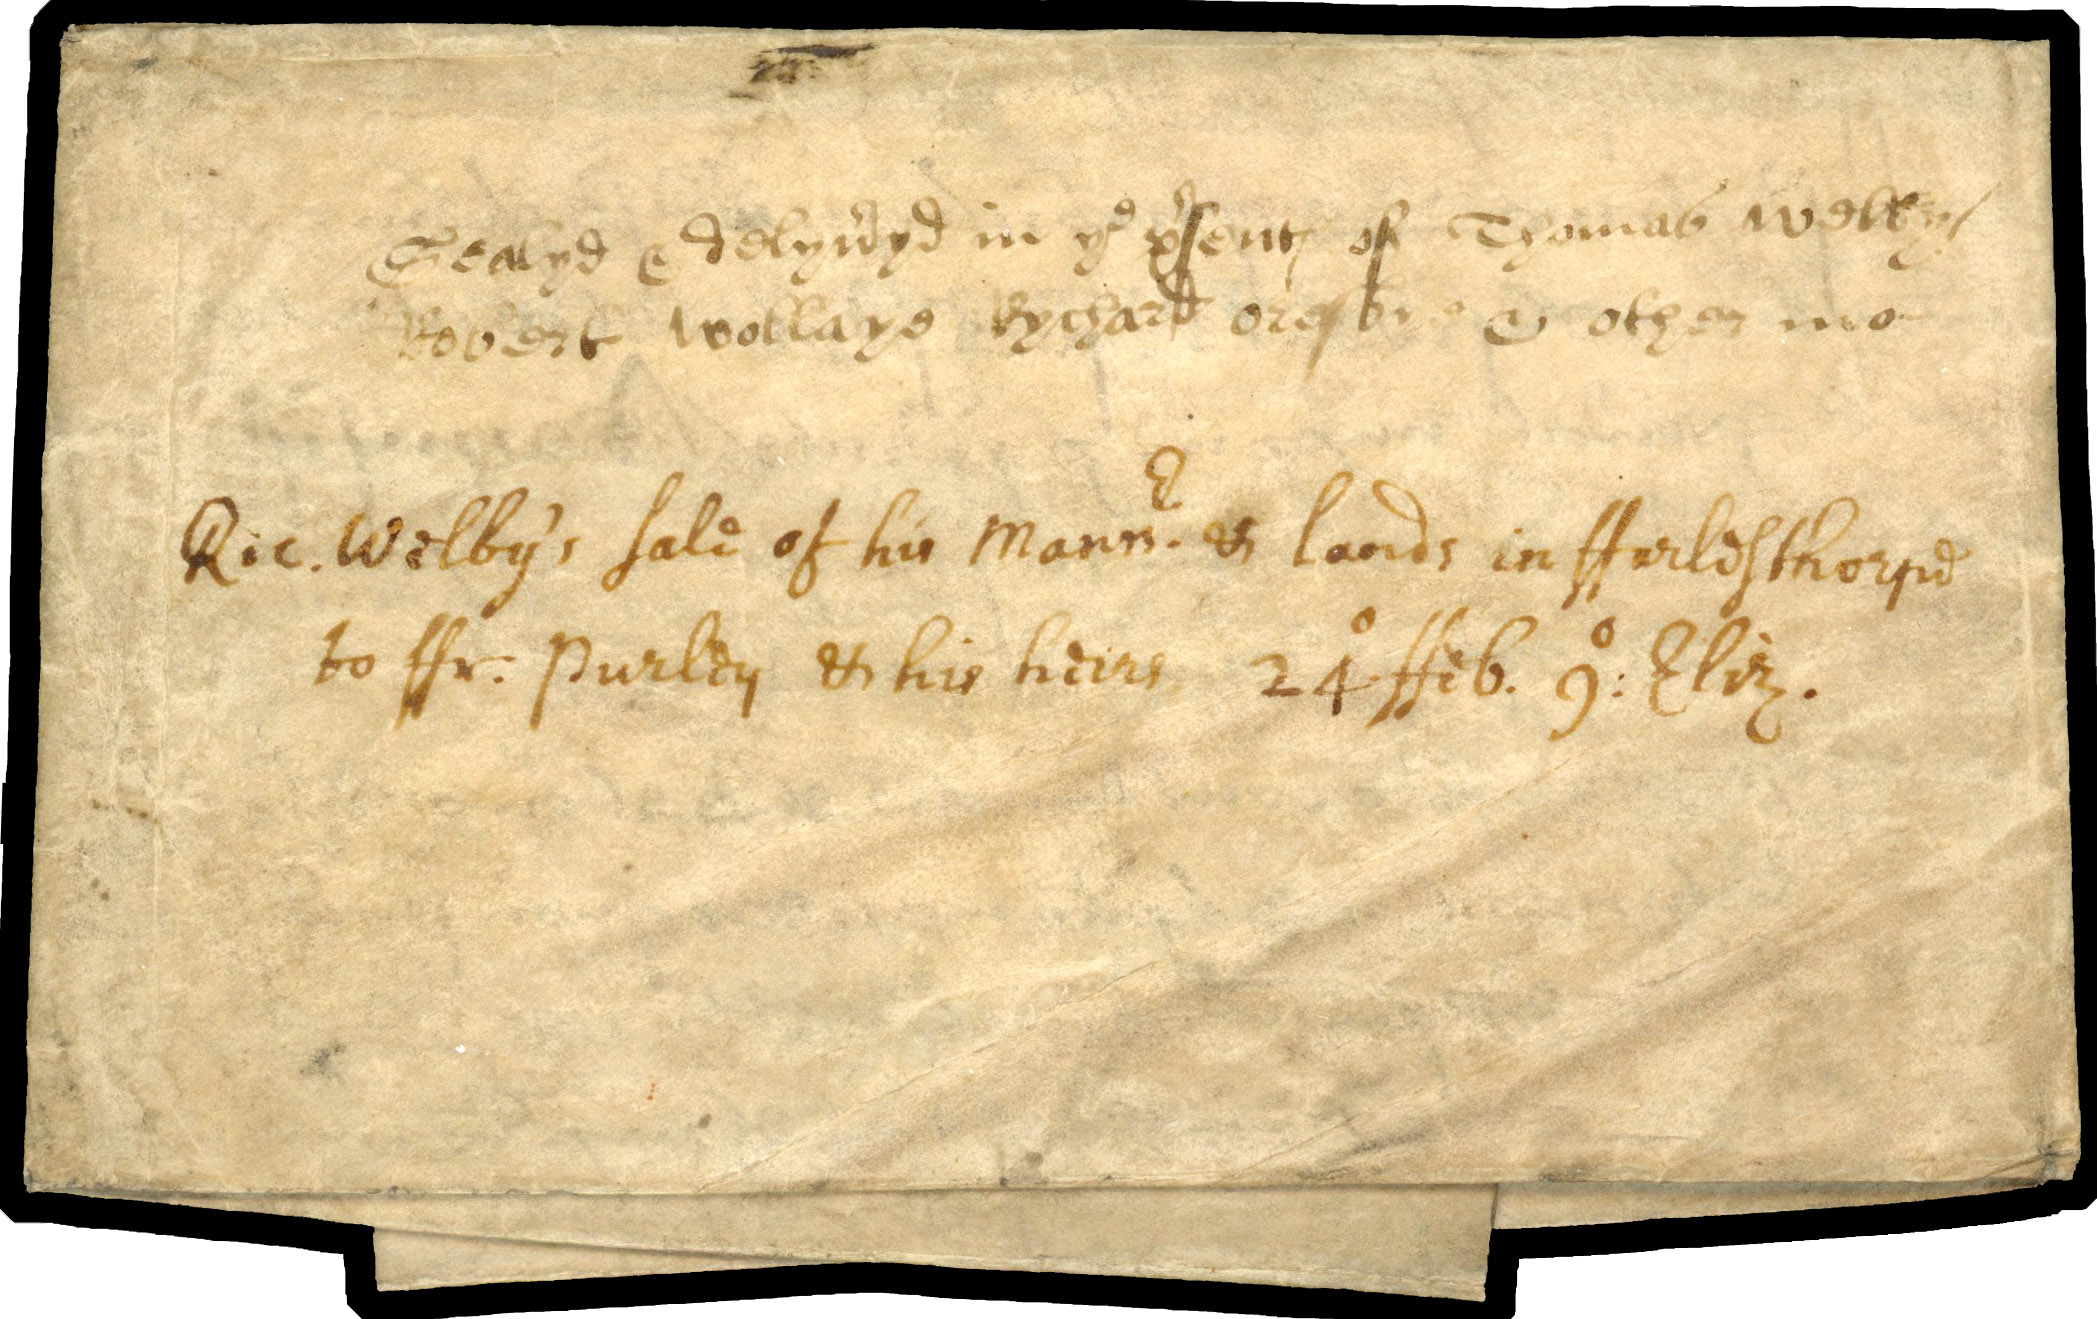 Sealyd & delyv'yd in ye p'sents of Thomas Welbye
Robert Wollaye Rychard & other mo
Ric. Welby's sale of his Mann.r & lands in fforlesthorpe
to ffr. Purley & his heirs. 24o ffeb. 9o: Eliz.